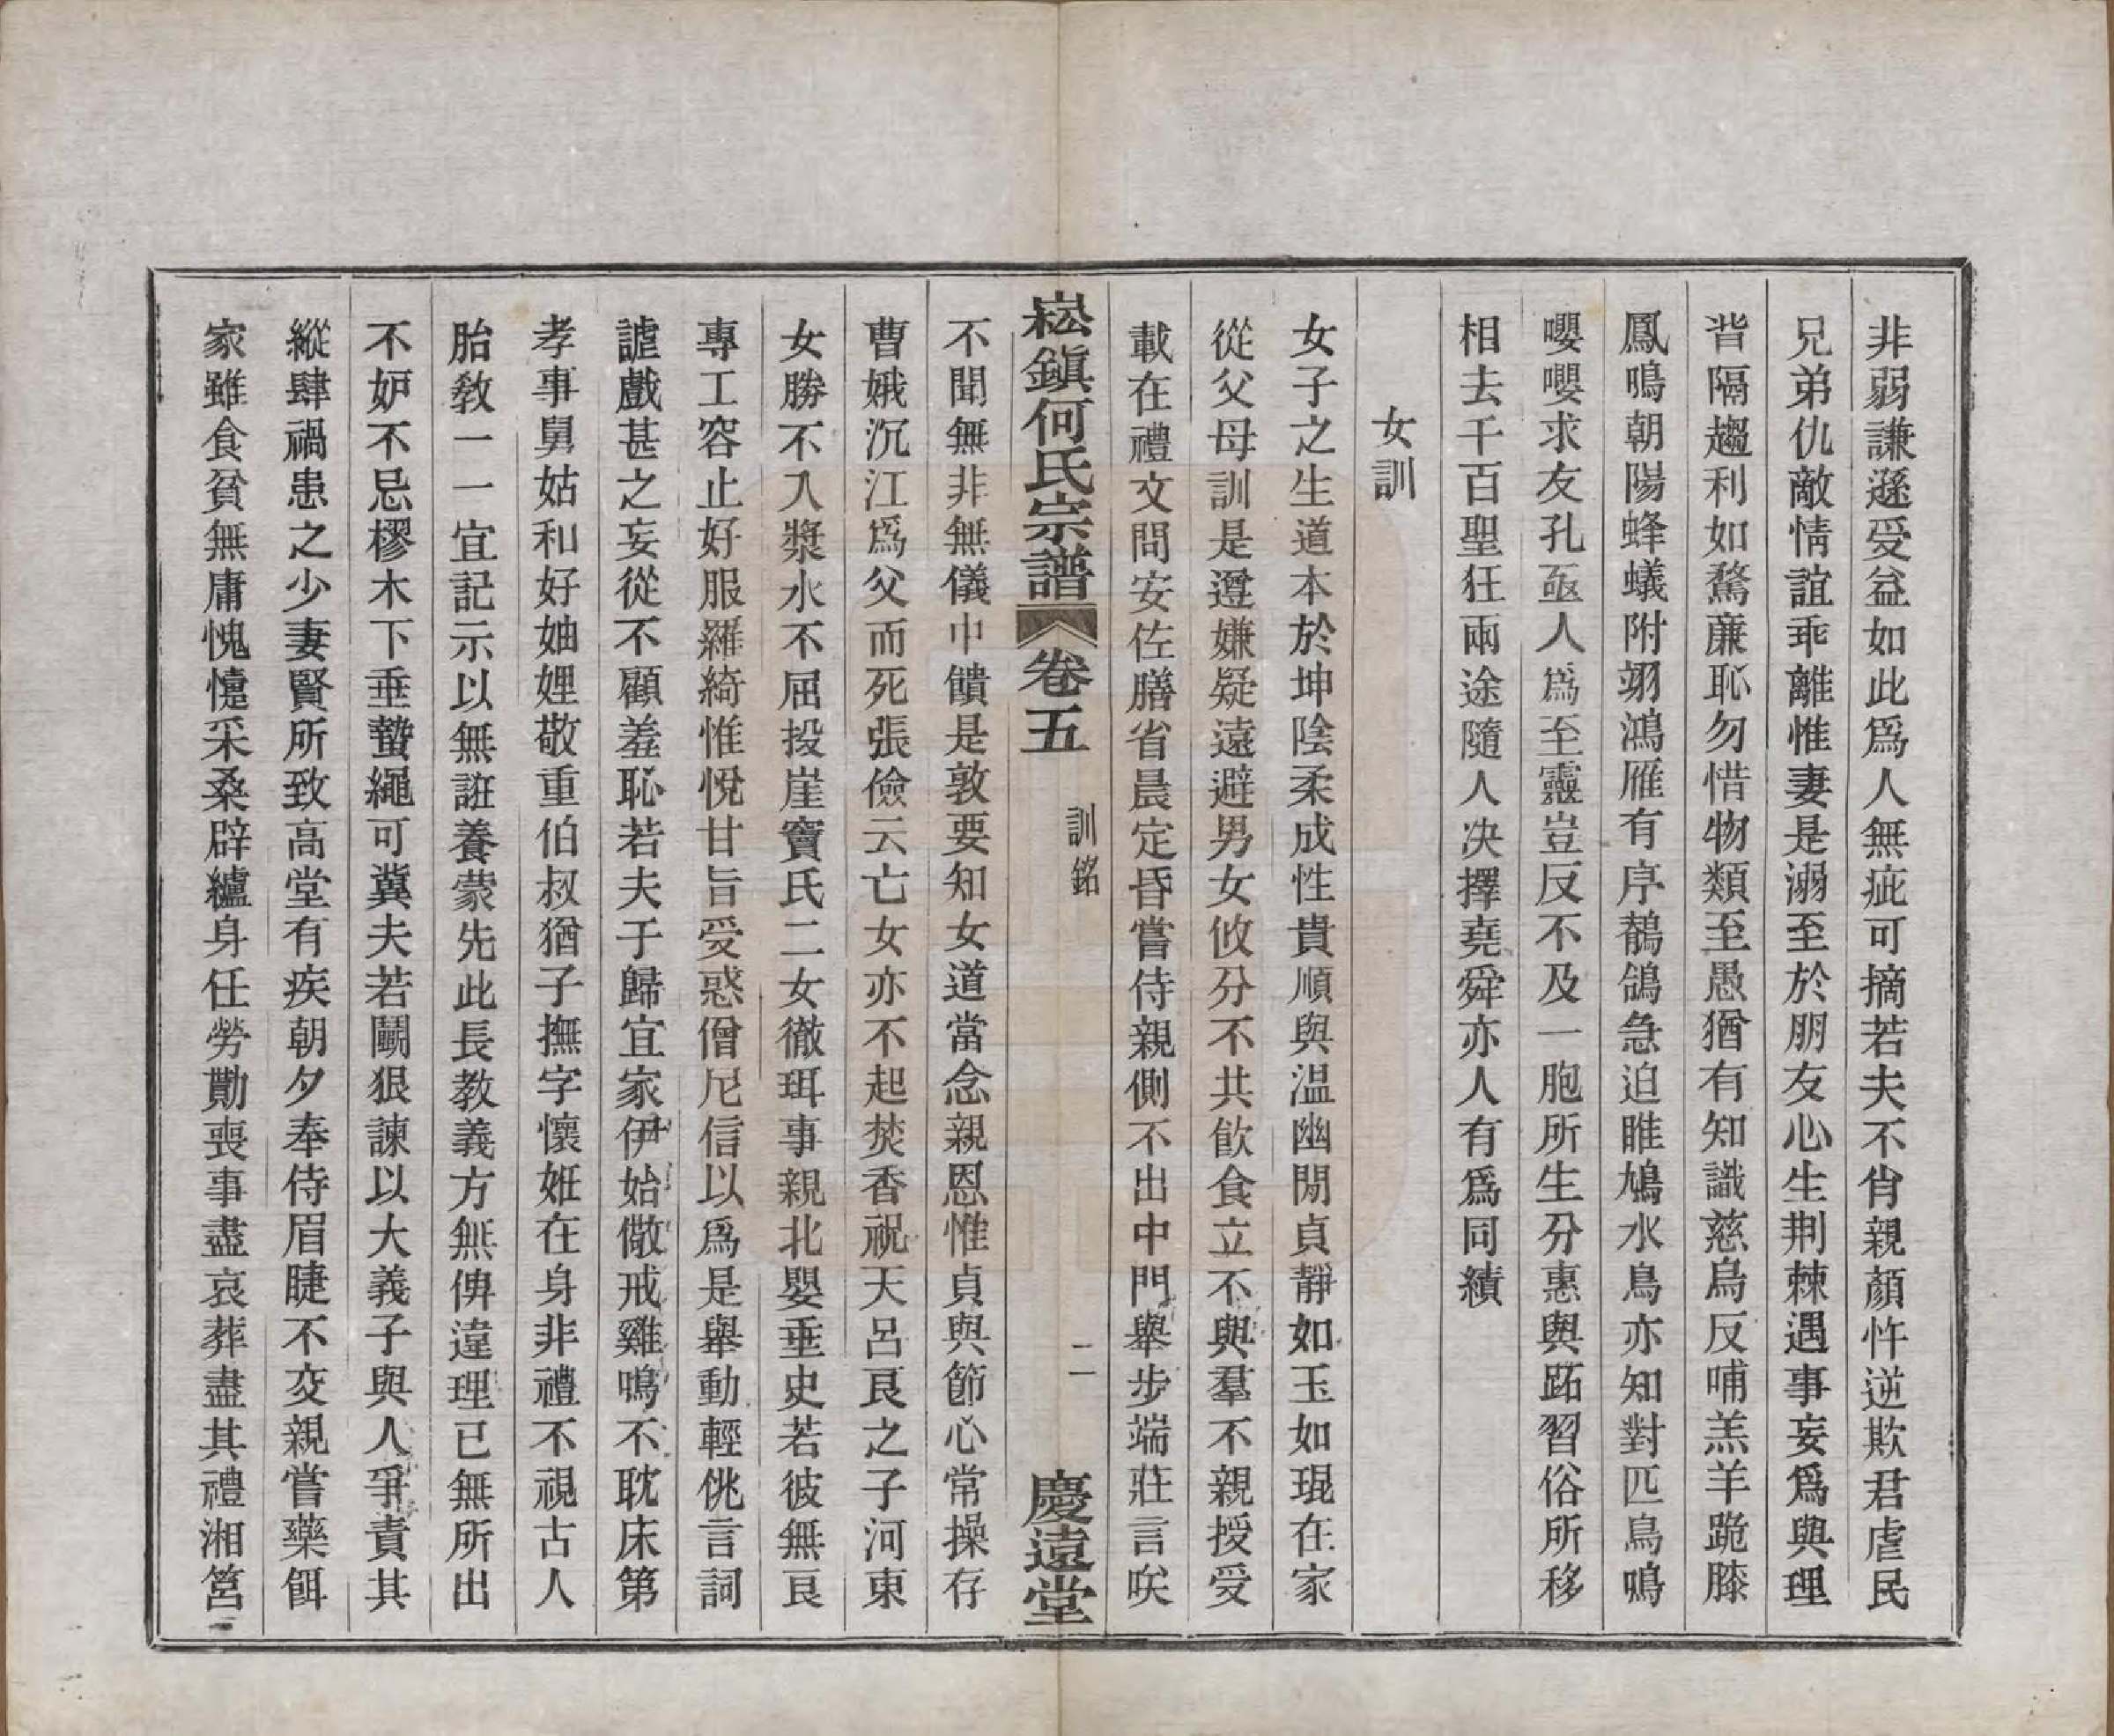 非弱謙遜受益如此爲人無疵可摘若夫不肖親顏忤逆欺君虐民
兄弟仇敵情誼乖離惟妻是溺至於朋友心生荆棘遇事妄爲與理
背隔趨利如騖廉恥勿惜物類至愚猶有知識慈烏反哺羔羊跪膝
鳳鳴朝陽蜂蟻附翊鴻雁有序鶺鴒急迫睢鳩水鳥亦知對匹鳥鳴
嚶嚶求友孔亟人爲至靈豈反不及一胞所生分惠與跖習俗所移
相去千百聖狂兩途隨人决擇堯舜亦人有爲同績
女訓
女子之生道本於坤陰柔成性貴順與温幽閒貞靜如玉如琨在家
從父母訓是遵嫌疑遠避男女攸分不共飲食立不與羣不親授受
載在禮文問安佐膳省晨定昏嘗侍親側不出中門舉步端莊言唉
崧鎭何氏宗譜 卷五 訓銘 二 慶遠堂
不聞無非無儀中饋是敦要知女道當念親恩惟貞與節心常操存
曹娥沉江爲父而死張儉云亡女亦不起焚香祝天呂良之子河東
女勝不入漿水不屈投崖竇氏二女徹珥事親北嬰垂史若彼無良
專工容止好服羅綺惟悅甘旨受惑僧尼信以爲是舉動輕佻言詞
謔戲甚之妄從不顧羞恥若夫于歸宜家伊始儆戒雞鳴不耽床第
孝事舅姑和好妯娌敬重伯叔猶子撫字懷姙在身非禮不視古人
胎教一一宜記示以無誑養蒙先此長教義方無俾違理已無所出
不妒不忌樛木下垂蟄繩可冀夫若鬭狠諫以大義子與人爭責其
縱肆禍患之少妻賢所致高堂有疾朝夕奉侍眉睫不交親嘗藥餌
家雖食貧無庸愧懥采桑辟纑身任勞勩喪事盡哀葬盡其禮湘筥